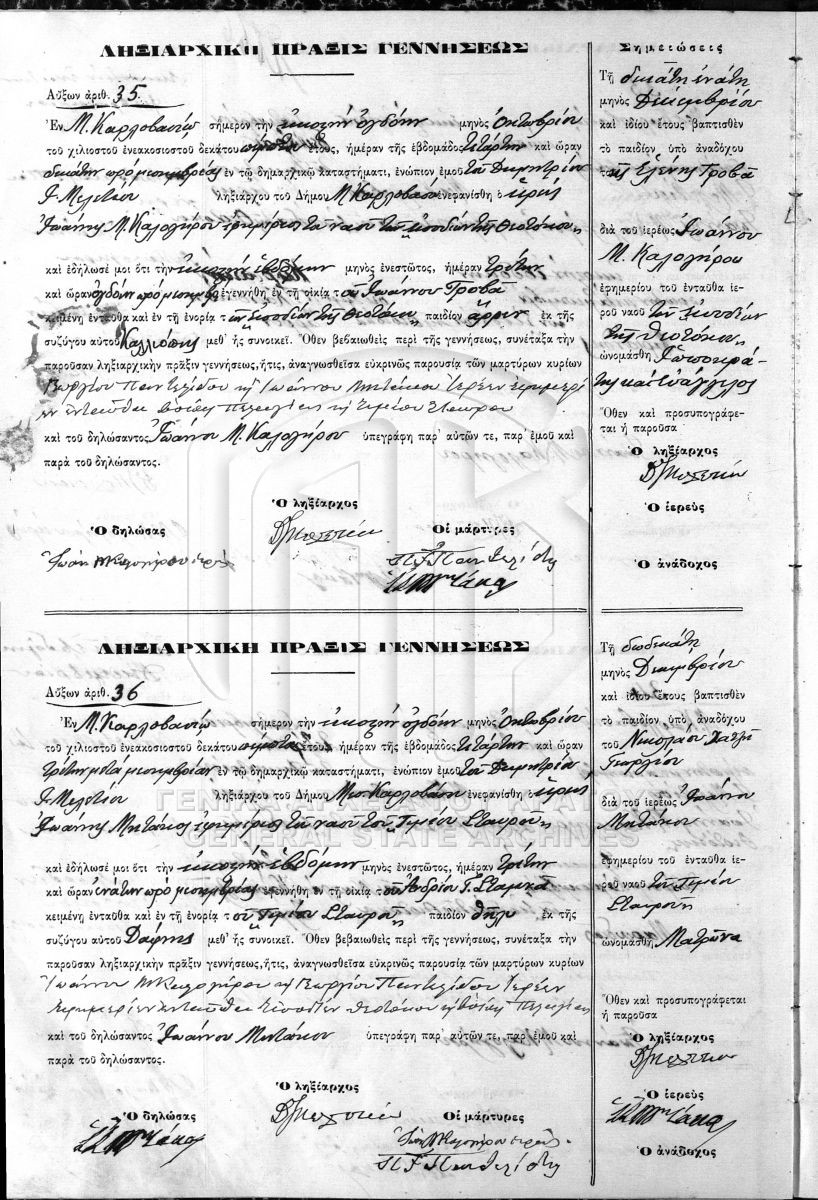 ΛΗΞΙΑΡΧΙΚΗ ΠΡΑΞΙΣ ΓΕΝΝΗΣΕΩΣ
Αὔξων ἀριθ. 35.
Ἐν Μ. Καρλοβασίῳ σήμερον τὴν εἰκοστὴν ὀγδόην μηνὸς Ὀκτωβρίου
τοῦ χιλιοστοῦ ἐνεακοσιοστοῦ δεκάτου ἔτους, ἡμέραν τῆς ἑβδομάδος Τετάρτην καὶ ὥραν
δεκάτην πρὸ μεσημβρίας ἐν τῷ δημαρχικῷ καταστήματι, ἐνώπιον ἐμοῦ τοῦ Δημητρίου
Γ. Μελετίου ληξιάρχου τοῦ Δήμου Μ. Καρλοβασίου ἐνεφανίσθη ὁ ἱερεὺς
Ἰωάννης Μ. Καλογήρου ἐφημέριος τοῦ ναοῦ τῶν „Εἰσοδίων τῆς Θεοτόκου„
καὶ ἐδήλωσέ μοι ὅτι τὴν εἰκοστὴν ἑβδόμην μηνὸς ἐνεστῶτος, ἡμέραν Τρίτην
καὶ ὥραν ὀγδόην πρὸ μεσημβρίας ἐγεννήθη ἐν τῇ οἰκίᾳ τοῦ Ἰωάννου Γροβᾶ
κειμένῃ ἐνταῦθα καὶ ἐν τῇ ἐνορίᾳ τῶν Εἰσοδίων τῆς Θεοτόκου„ παιδίον ἄρρεν ἐκ τῆς
συζύγου αὐτοῦ Καλλιόπης μεθ' ἧς συνοικεῖ. Ὅθεν βεβαιωθεὶς περὶ τῆς γεννήσεως, συνέταξα τὴν
παροῦσαν ληξιαρχικὴν πρᾶξιν γεννήσεως, ἥτις, ἀναγνωσθεῖσα εὐκρινῶς παρουσίᾳ τῶν μαρτύρων κυρίων
Γεωργίου Παντελίδου καὶ Ἰωάννου Μητάκου ἱερέων ἐφημερί
ων ἐνταῦθα Πελαγίας καὶ Τιμίου Σταυροῦ
καὶ τοῦ δηλώσαντος Ἰωάννου Μ. Καλογήρου ὑπεγράφη παρ' αὐτῶν τε, παρ' ἐμοῦ καὶ
παρὰ τοῦ δηλώσαντος.
Ὁ ληξίαρχος
Ὁ δηλώσας Οἱ μάρτυρες
Σημειώσεις
Τῇ δεκάτῃ ἐνάτῃ
μηνὸς Δεκεμβρίου
καὶ ἰδίου ἔτους βαπτισθὲν
τὸ παιδίον ὑπὸ ἀναδόχου
τῆς Ἑλένης Γροβᾶ
διὰ τοῦ ἱερέως Ἰωάννου
Μ. Καλογήρου
ἐφημερίου τοῦ ἐνταῦθα ἱε-
ροῦ ναοῦ τῶν Εἰσοδίων
τῆς Θεοτόκου„
ὠνομάσθη Ἱπποκρά-
της καὶ Εὐάγγελος
Ὅθεν καὶ προσυπογράφε-
ται ἡ παροῦσα
Ὁ ληξίαρχος
Ὁ ἱερεὺς
Ὁ ἀνάδοχος
ΛΗΞΙΑΡΧΙΚΗ ΠΡΑΞΙΣ ΓΕΝΝΗΣΕΩΣ
Αὔξων ἀριθ. 36
Ἐν Μ. Καρλοβασίῳ σήμερον τὴν εἰκοστὴν ὀγδόην μηνὸς Ὀκτωβρίου
τοῦ χιλιοστοῦ ἐνεακοσιοστοῦ δεκάτου ἔτους, ἡμέραν τῆς ἑβδομάδος Τετάρτην καὶ ὥραν
τρίτην μετὰ μεσημβρίαν ἐν τῷ δημαρχικῷ καταστήματι, ἐνώπιον ἐμοῦ τοῦ Δημητρίου
Γ. Μελετίου ληξιάρχου τοῦ Δήμου Μεσ. Καρλοβασίου ἐνεφανίσθη ὁ ἱερεὺς
Ἰωάννης Μητάκος ἐφημέριος τοῦ ναοῦ τοῦ „Τιμίου Σταυροῦ„
καὶ ἐδήλωσέ μοι ὅτι τὴν εἰκοστὴν ἑβδόμην μηνὸς ἐνεστῶτος, ἡμέραν Τρίτην
καὶ ὥραν ἐνάτην πρὸ μεσημβρίας ἐγεννήθη ἐν τῇ οἰκίᾳ τοῦ Ἀνδρέου Γ. Σταμνᾶ
κειμένῃ ἐνταῦθα καὶ ἐν τῇ ἐνορίᾳ τοῦ „Τιμίου Σταυροῦ„ παιδίον θῆλυ ἐκ τῆς
συζύγου αὐτοῦ Δάφνης μεθ' ἧς συνοικεῖ. Ὅθεν βεβαιωθεὶς περὶ τῆς γεννήσεως, συνέταξα τὴν
παροῦσαν ληξιαρχικὴν πρᾶξιν γεννήσεως, ἥτις, ἀναγνωσθεῖσα εὐκρινῶς παρουσίᾳ τῶν μαρτύρων κυρίων
Ἰωάννου Μ Καλογήρου καὶ Γεωργίου Παντελίδου ἱερέων
ἐφημερίων ἐνταῦθα Εἰσοδίων Θεοτόκου Πελαγίας
καὶ τοῦ δηλώσαντος Ἰωάννου Μητάκου ὑπεγράφη παρ' αὐτῶν τε, παρ' ἐμοῦ καὶ
παρὰ τοῦ δηλώσαντος.
Ὁ ληξίαρχος
Ὁ δηλώσας Οἱ μάρτυρες
Τῇ δωδεκάτῃ
μηνὸς Δεκεμβρίου
καὶ ἰδίου ἔτους βαπτισθὲν
τὸ παιδίον ὑπὸ ἀναδόχου
τοῦ Νικολάου Χατζῆ
Γεωργίου
διὰ τοῦ ἱερέως Ἰωάννου
Μητάκου
ἐφημερίου τοῦ ἐνταῦθα ἱε-
ροῦ ναοῦ τοῦ Τιμίου
Σταυροῦ„
ὠνομάσθη Ματρῶνα
Ὅθεν καὶ προσυπογράφεται
ἡ παροῦσα
Ὁ ληξίαρχος
Ὁ ἱερεὺς
Ὁ ἀνάδοχος
ΓΕΝΙΚΑ ΑΡΧΕΙΑ ΤΟΥ ΚΡΑΤΟΥΣ
GENERAL STATE ARCHIVES